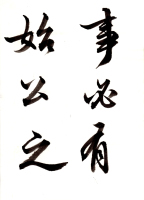 事必有
始公之